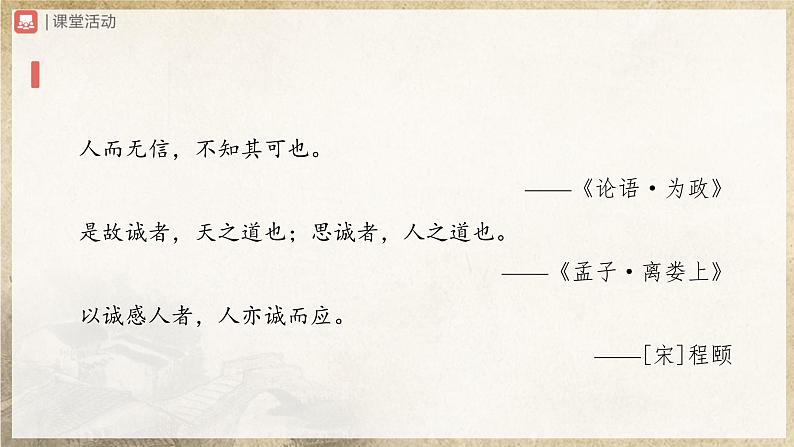 |课堂活动
人而无信，不知其可也。
——《论语·为政》
是故诚者，天之道也；思诚者，人之道也。
——《孟子·离娄上》
以诚感人者，人亦诚而应。
——[宋]程颐